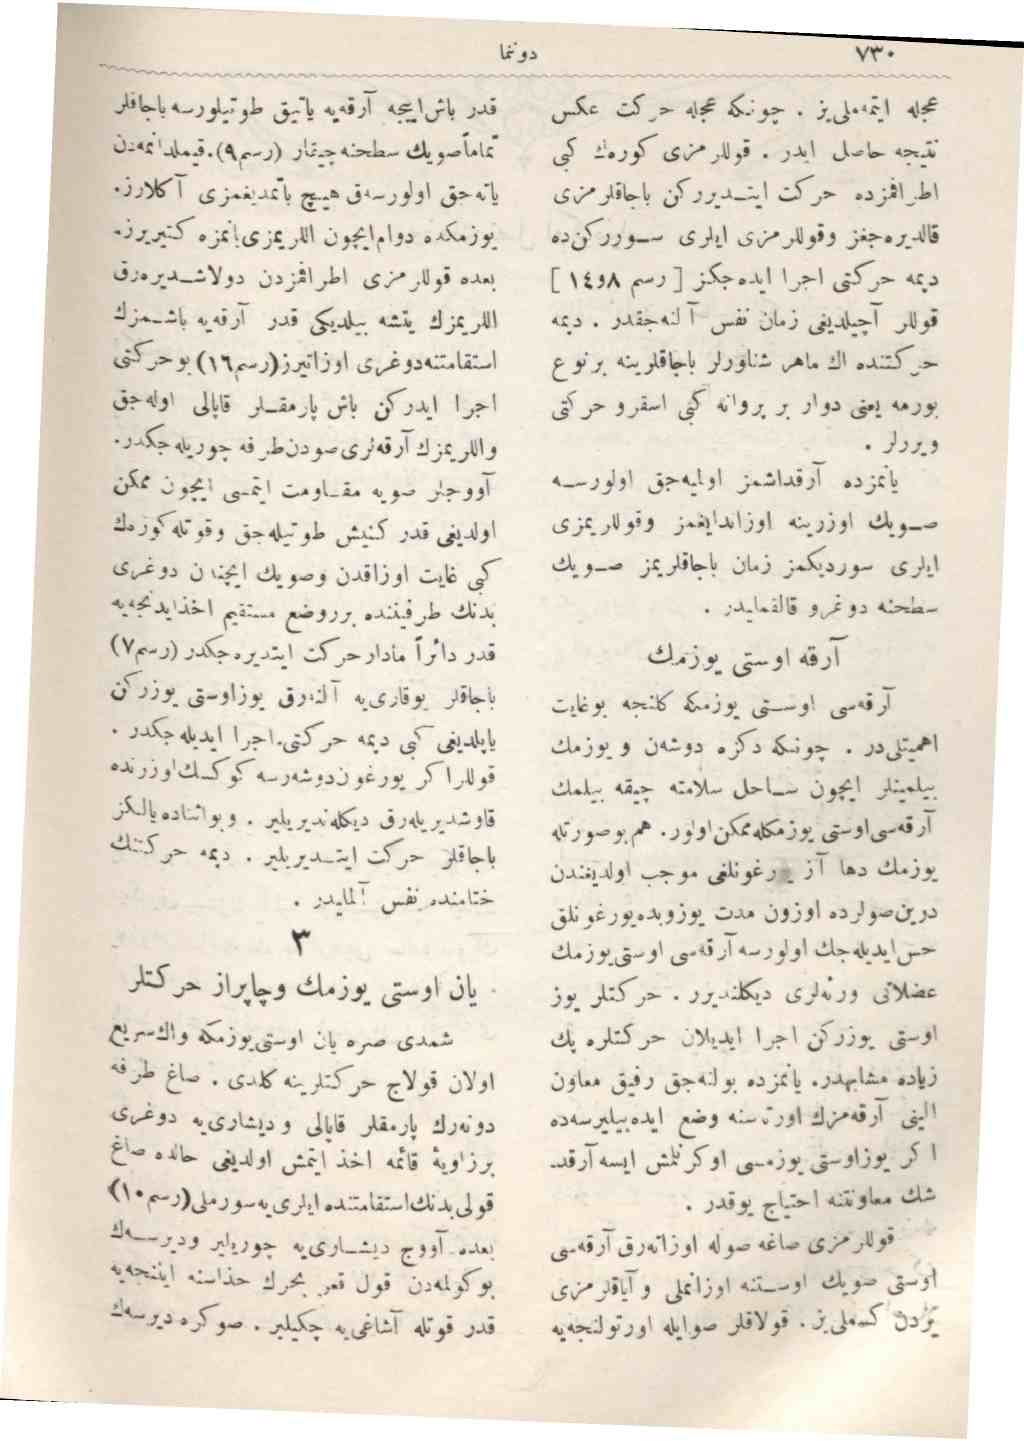 ٧٣٠
دوننما
عجله ايتمه‌ملى‌يز . چونكه عجله حركت عكس
نتيجه حاصل ايدر . قوللرمزى كورەك كبى
اطرافمزده حركت ايتــديرركن باجاقلرمزى
قالديره‌جغز وقوللرمزى ايلرى ســوررکن‌ده
ديمه حركتى اجرا ايده‌جكز [ رسم ٨و١٤ ]
قوللر آچيلديغى زمان نفس آلنه‌جقدر . ديمه
حركتنده اك ماهر شناورلر باجاقلرينه برنوع
بورمه يعنى دوار بر پروانه كبى اسقرو حركتى
ويررلر .
يانمزده آرقداشمز اوليه‌جق اولورســه
صــويك اوزرينه اوزاندايغمز وقوللريمزى
ايلرى سورديكمز زمان باجاقلريمز صــويك
سطحنه دوغرو قالقمليدر .
آرقه اوستى يوزمك
آرقه‌سى اوســتى يوزمكه كلنجه بوغايت
اهميتلى‌در . چونكه دكزه دوشه‌ن و يوزمك
بيلمينلر ايچون ســاحل سلامته چيقه بيلمك
آرقه‌سى‌اوستى يوزمكله‌ممكن‌اولور. هم‌بوصورتله
يوزمك دها آز يورغونلغى موجب اولديغندن
درين‌صولرده اوزون مدت يوزوبده‌يورغونلق
حس‌ايديله‌جك اولورسه آرقه‌سى اوستى‌يوزمك
عضلاتى ورئه‌لرى ديكلنديرر . حركتلر يوز
اوستى يوزركن اجرا ايديلان حركتلره پك
زياده مشابهدر. يانمزده بولنه‌جق رفيق معاون
الينى آرقه‌مزك اورته‌سنه وضع ايده‌بيليرسه‌ده
اكر يوزاوستى يوزمسى اوكرنلمش ايسه آرقدا
شك معاونتنه احتياج يوقدر .
قوللرمزى صاغه صوله اوزاته‌رق آرقه‌سى
اوستى صويك اوســتنه اوزانملى و آياقلرمزى
يردن كسملى‌يز . قولاقلر صوايله اورتولنجه‌يه
قدر باش‌اييجه آرقه‌يه ياتيق طوتيلورسه باجاقلر
تماماًصويك سطحنه‌چيقار (رسم٩).قيملدانمه‌دن
ياته‌جق اولورسه‌ق هيــچ باتمديغمزى آكلارز.
يوزمكده دوام‌ايچون اللريمزى‌يانمزه كتيريرز.
بعده قوللرمزى اطرافمزدن دولاشــديره‌رق
اللريمزك يتشه بيلديكى قدر آرقه‌يه باشــمزك
استقامتنه‌دوغرى اوزاتيرز(رسم١٦)بوحركتى
اجرا ايدركن باش پارمقــلر قاپالى اوله‌جق
واللريمزك آرقه‌لرى‌صودن‌طرفه چوريله‌جكدر.
آووجلر صويه مقــاومت ايتمسى ايچون ممكن
اولديغى قدر كنيش طوتيله‌جق وقوتله‌كورەك
كبى غايت اوزاقدن وصويك ايچندن دوغرى
بدنك طرفيننده برروضع مستقيم اخذايدنجه‌يه
قدر دائراً مادارحركت ايتديره‌جكدر (رسم٧)
باجاقلر يوقارى‌يه آلنه‌رق يوزاوستى يوزركن
ياپلديغى كبى ديمه حركتى.اجرا ايديله‌جكدر .
قوللراكر يورغون‌دوشه‌رسه كوكسك‌اوزرنده
قاوشديريله‌رق ديكله‌نديريلير . وبواثناده‌يالكز
باجاقلر حركت ايتــديريلير . ديمه حركتنك
ختامنده نفس آلمليدر .
٣
يان اوستى يوزمك وچاپراز حركتلر
شمدى صره يان اوستى‌يوزمكه واك‌سريع
اولان قولاج حركتلرينه كلدى . صاغ طرفه
دونه‌رك پارمقلر قاپالى و ديشارى‌يه دوغرى
برزاويۀ قائمه اخذ ايتمش اولديغى حالده صاغ
قولى‌بدنك‌استقامتنده‌ايلرى‌يه‌سورملى(رسم١٠)
بعده آووج ديشــارى‌يه چوريلير وديرســەك
بوكولمه‌دن قول قعر بحرك حذاسنه ايننجه‌يه
قدر قوتله آشاغى‌يه چكيلير . صوكره ديرسه‌ك